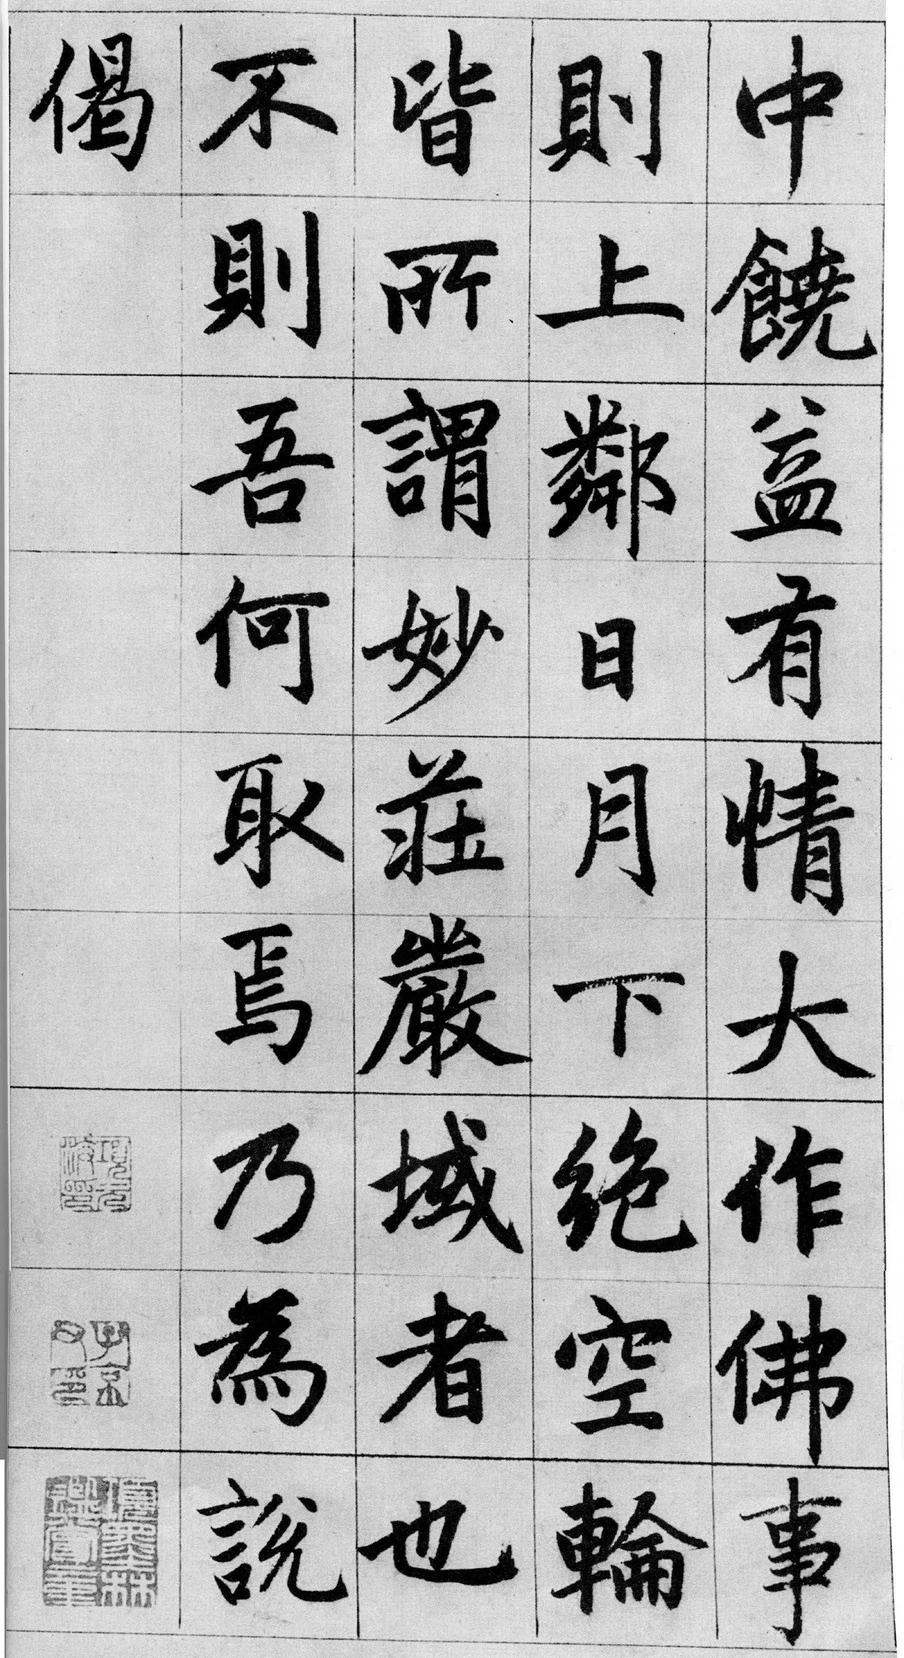 中饒益有情大作佛事
則上鄰日月下絶空輪
皆所謂妙莊嚴域者也
不則吾何取焉乃為説
偈